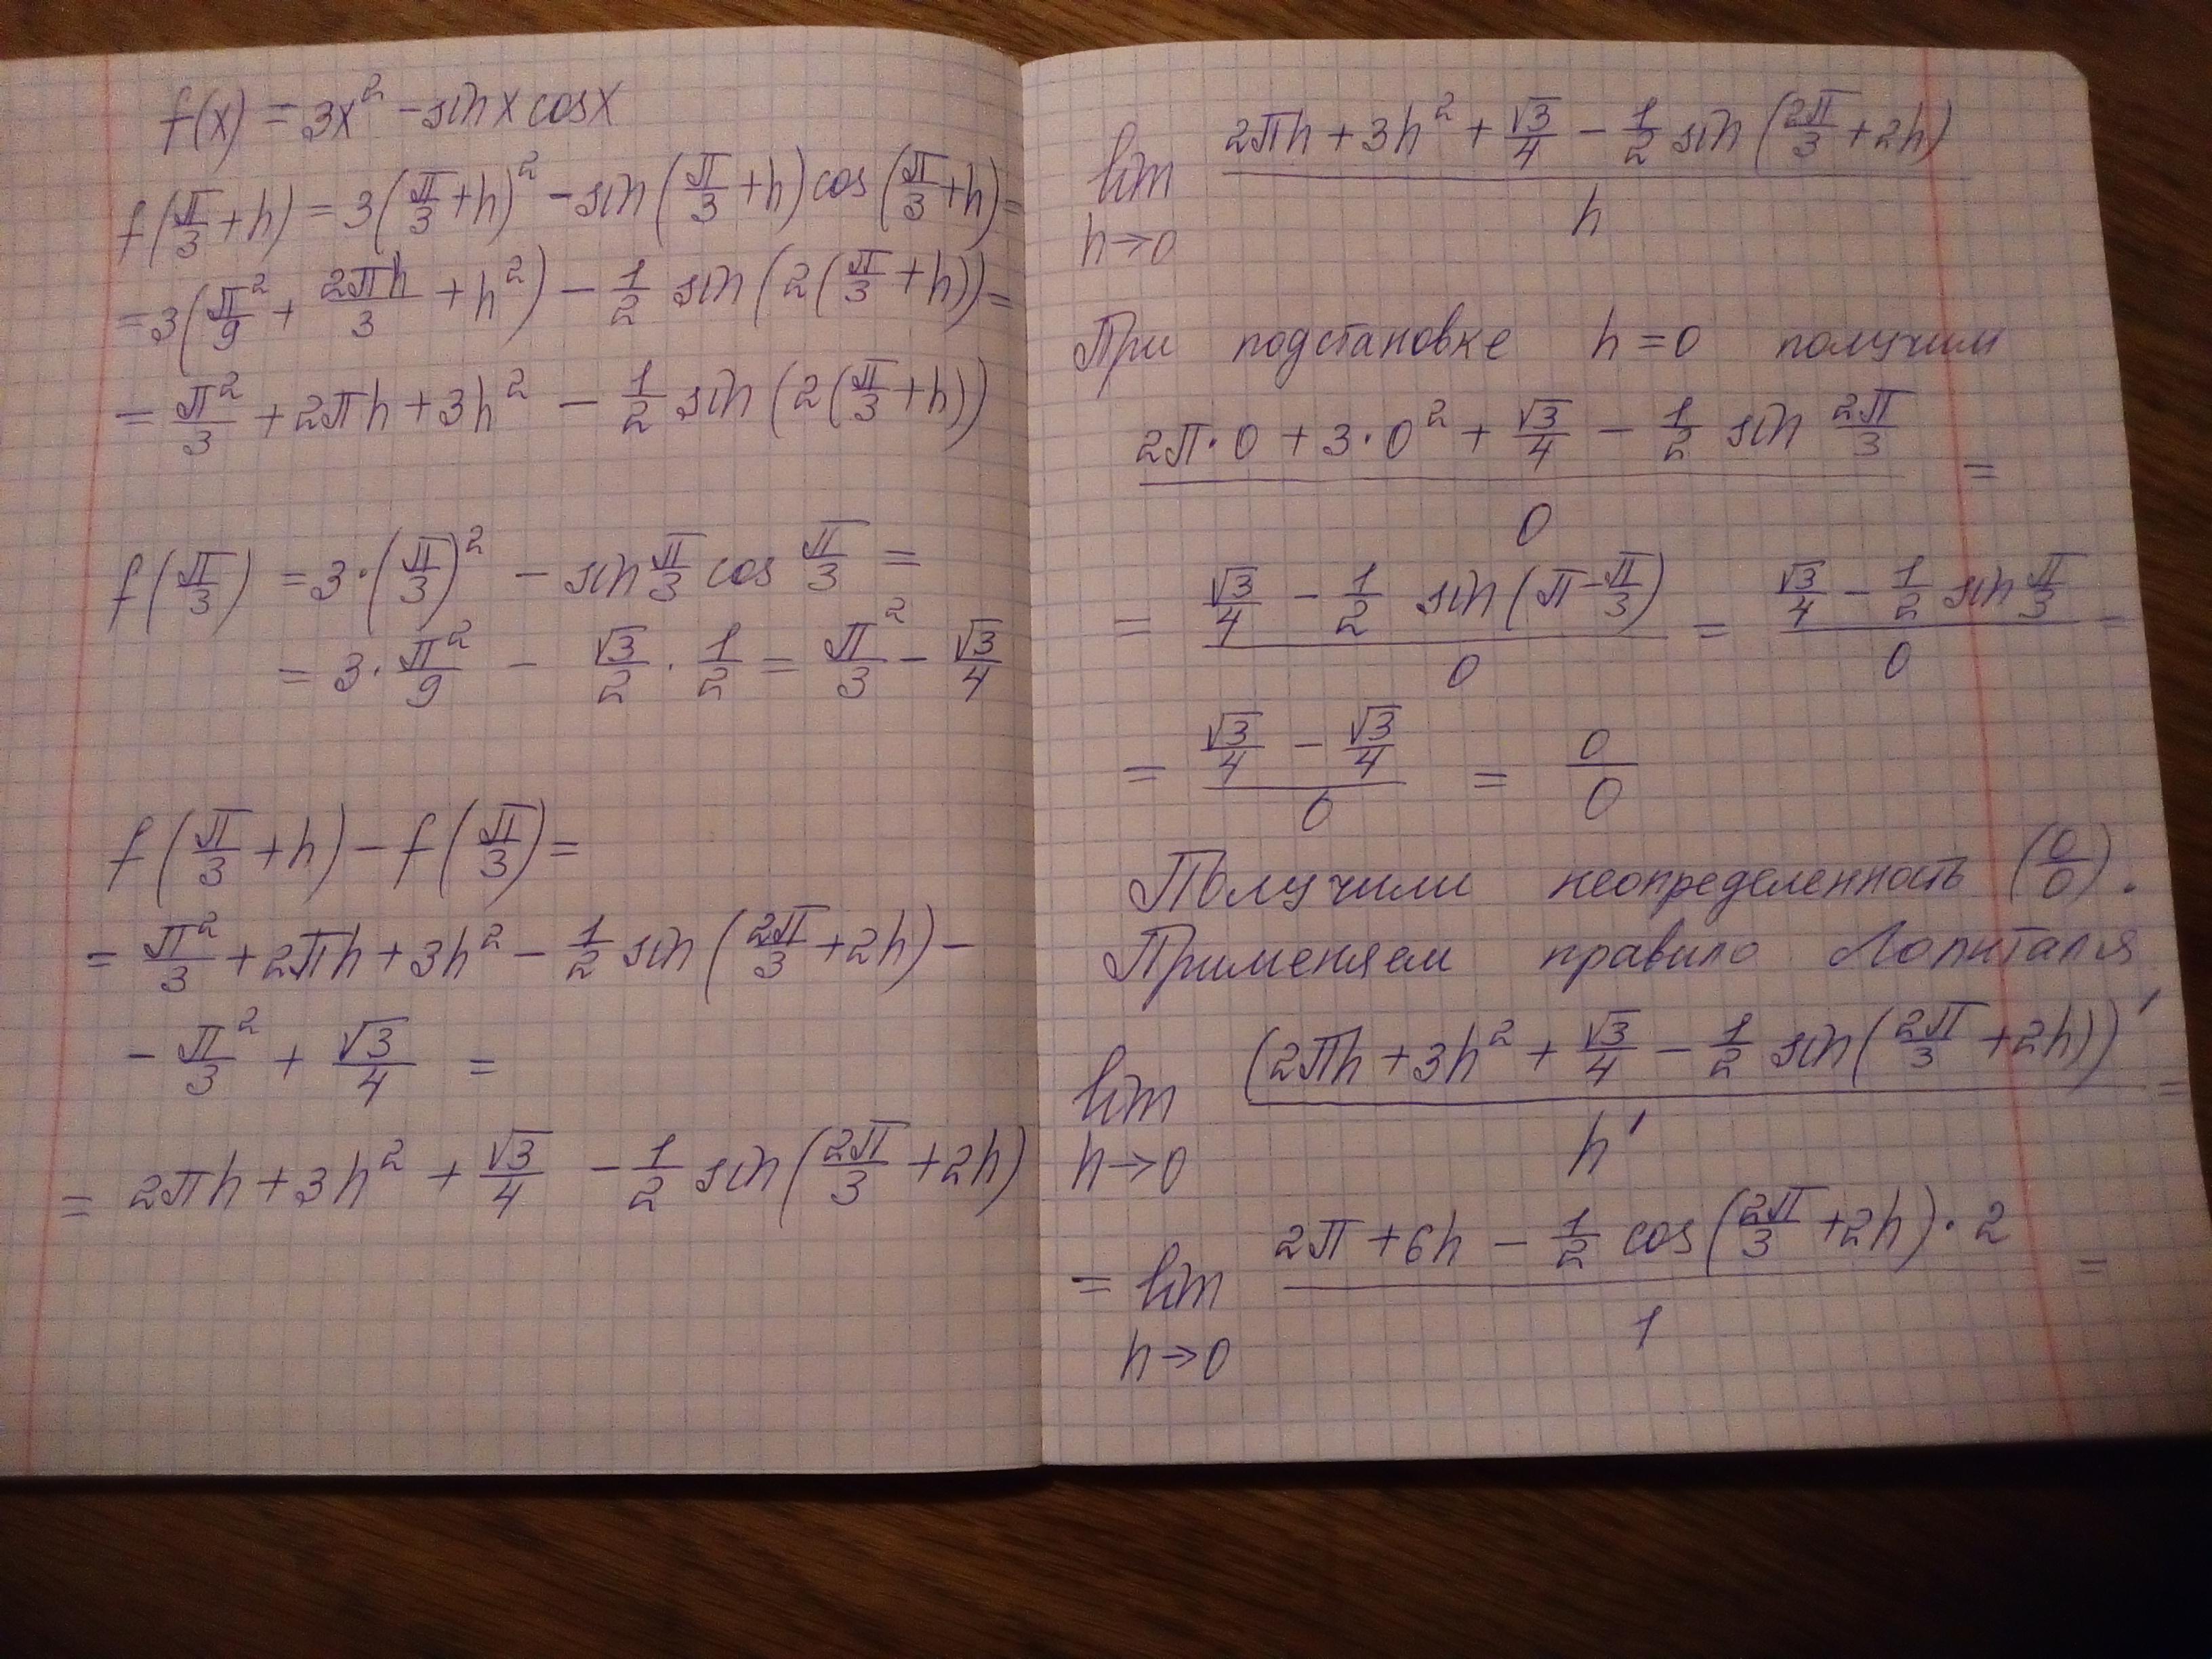 f(x) = 3x² - sin x cos x
f(π/3 + h) = 3(π/3 + h)² - sin(π/3 + h) cos(π/3 + h) =
= 3(π²/9 + 2πh/3 + h²) - 1/2 sin(2(π/3 + h)) =
= π²/3 + 2πh + 3h² - 1/2 sin(2(π/3 + h))
f(π/3) = 3·(π/3)² - sin π/3 cos π/3 =
= 3·π²/9 - √3/2 · 1/2 = π²/3 - √3/4
f(π/3 + h) - f(π/3) =
= π²/3 + 2πh + 3h² - 1/2 sin(2π/3 + 2h) -
- π²/3 + √3/4 =
= 2πh + 3h² + √3/4 - 1/2 sin(2π/3 + 2h)
lim h→0 (2πh + 3h² + √3/4 - 1/2 sin(2π/3 + 2h)) / h
При подстановке h = 0 получим
(2π·0 + 3·0² + √3/4 - 1/2 sin 2π/3) / 0 =
= (√3/4 - 1/2 sin(π - π/3)) / 0 = (√3/4 - 1/2 sin π/3) / 0 =
= (√3/4 - √3/4) / 0 = 0/0
Получили неопределенность (0/0).
Применяем правило Лопиталя
lim h→0 (2πh + 3h² + √3/4 - 1/2 sin(2π/3 + 2h))' / h' =
= lim h→0 (2π + 6h - 1/2 cos(2π/3 + 2h)·2) / 1 =